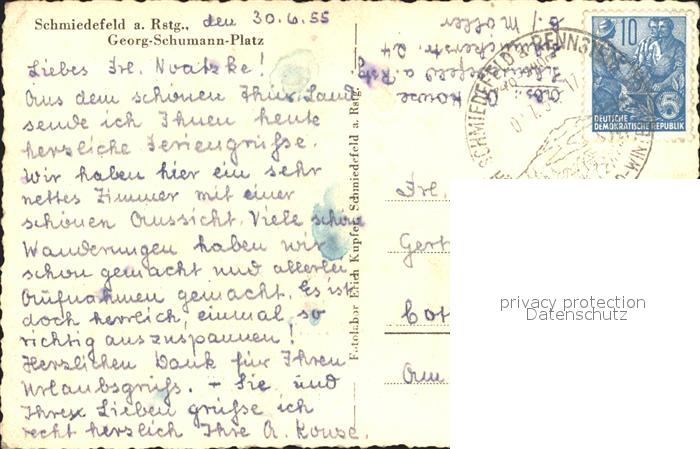 Schmiedefeld a. Rstg., den 30.6.55
Georg-Schumann-Platz
Liebes Frl. Noatzke!
Aus dem schönen Thür. Land
sende ich Ihnen heute
herzliche Feriengrüsse.
Wir haben hier ein sehr
nettes Zimmer mit einer
schönen Aussicht. Viele schöne
Wanderungen haben wir
schon gemacht und allerlei
Aufnahmen gemacht. Es ist
doch herrlich, einmal so
richtig auszuspannen!
Herzlichen Dank für Ihren
Urlaubsgruss. - Sie und
Ihre Lieben grüsse ich
recht herzlich Ihre A. Kouse.
Fotolabor Erich Kupfer, Schmiedefeld a. Rstg.
Abs. A. Kouse
Schmiedefeld a. Rstg.
24
b/ Möller
SCHMIEDEFELD a. RENNSTEIG
10
5
DEUTSCHE
DEMOKRATISCHE REPUBLIK
Frl.
Gert
Cott
Am
privacy protection
Datenschutz